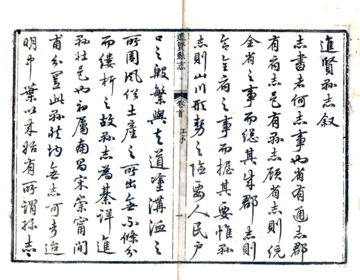 進賢縣志叙
志書者何志事也省有通志郡
有府志邑有縣志顧省志則統
全省之事而總其成郡志則
合全府之事而握其要惟縣
志則山川形勢之險要人民户
口之殷繁與夫道塗溝洫之
所周風俗土產之所出無不條分
而縷析之故縣志為綦詳進
縣壯邑也初屬南昌宋崇甯間
甫分置此縣壯均無志可考迨
明中葉以來始有所謂縣志
進賢縣志
卷首